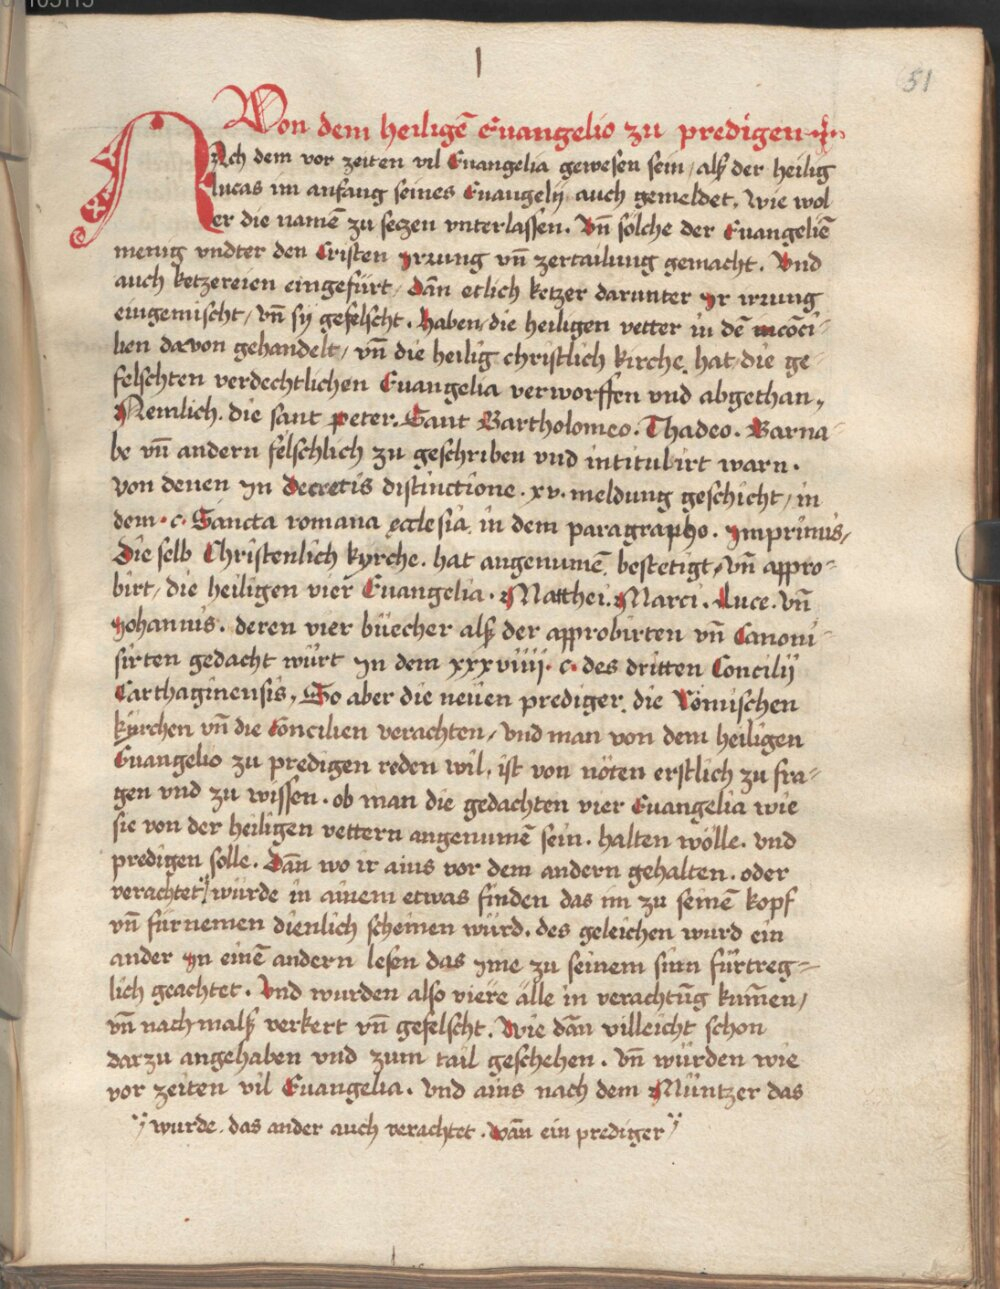 51
Von dem heiligē Euangelio zu predigen
NAch dem vor zeiten vil Euangelia gewesen sein / alß der heilig
lucas im anfang seines Euangelij auch gemeldet. Wie wol
er die namē zu seczen vnterlassen. Vn̄ sölche der Euangeliē
menig vndter den Cristen Jrrung vn̄ zertailung gemacht. Vnd
auch ketzereien eingefürt / Dān etlich ketzer darunter Jr irrung
eingemischt / vn̄ sij gefelscht. Haben / die heiligen vetter in dē concī-
lien davon gehandelt / vn̄ die heilig christlich kirche. hat die ge-
felschten verdechtlichen Euangelia verworffen vnd abgethan,
Nemlich. die sant peter. Sant Bartholomeo. Thadeo. Barna-
be vn̄ andern felschlich zu geschriben vnd intitulirt warn.
von denen Jn Decretis distinctione .xv. meldung geschicht / in
dem .c. Sancta romana ecclesia. in dem paragrapho. Jmprimis,
Die selb Christenlich kyrche. hat angenumē, bestetigt, vn̄ appro-
birt, die heiligen vier Euangelia. Matthei. Marci. Luce. vn̄
Johannis. deren vier büecher alß der approbirten vn̄ Canoni-
sirten gedacht würt Jn dem xxxviiij. c. des dritten Concilij
Carthaginensis, So aber die neüen prediger. die Römischen
kyrchen vn̄ die Concilien verachten, vnd man von dem heiligen
Euangelio zu predigen reden wil, ist von nöten erstlich zu fra-
gen vnd zu wissen. ob man die gedachten vier Euangelia wie
sie von der heiligen vettern angenumē sein. halten wölle. vnd
predigen solle. Dān wo ir ains vor dem andern gehalten. oder
verachtet würde in ainem etwas finden das im zu seinē kopf
vn̄ fürnemen dienlich scheinen würd. des geleichen wurd ein
ander Jn einē andern lesen das Jme zu seinem sinn fürtreg-
lich geachtet. Vnd wurden also viere alle in verachtūg kum̄en,
vn̄ nachmalß verkert vn̄ gefelscht. Wie dān villeicht schon
darzu angehaben vnd zum tail geschehen. Vn̄ würden wie
vor zeiten vil Euangelia. Vnd ains nach dem Müntzer das
wurde. das ander auch verachtet. Wān ein prediger